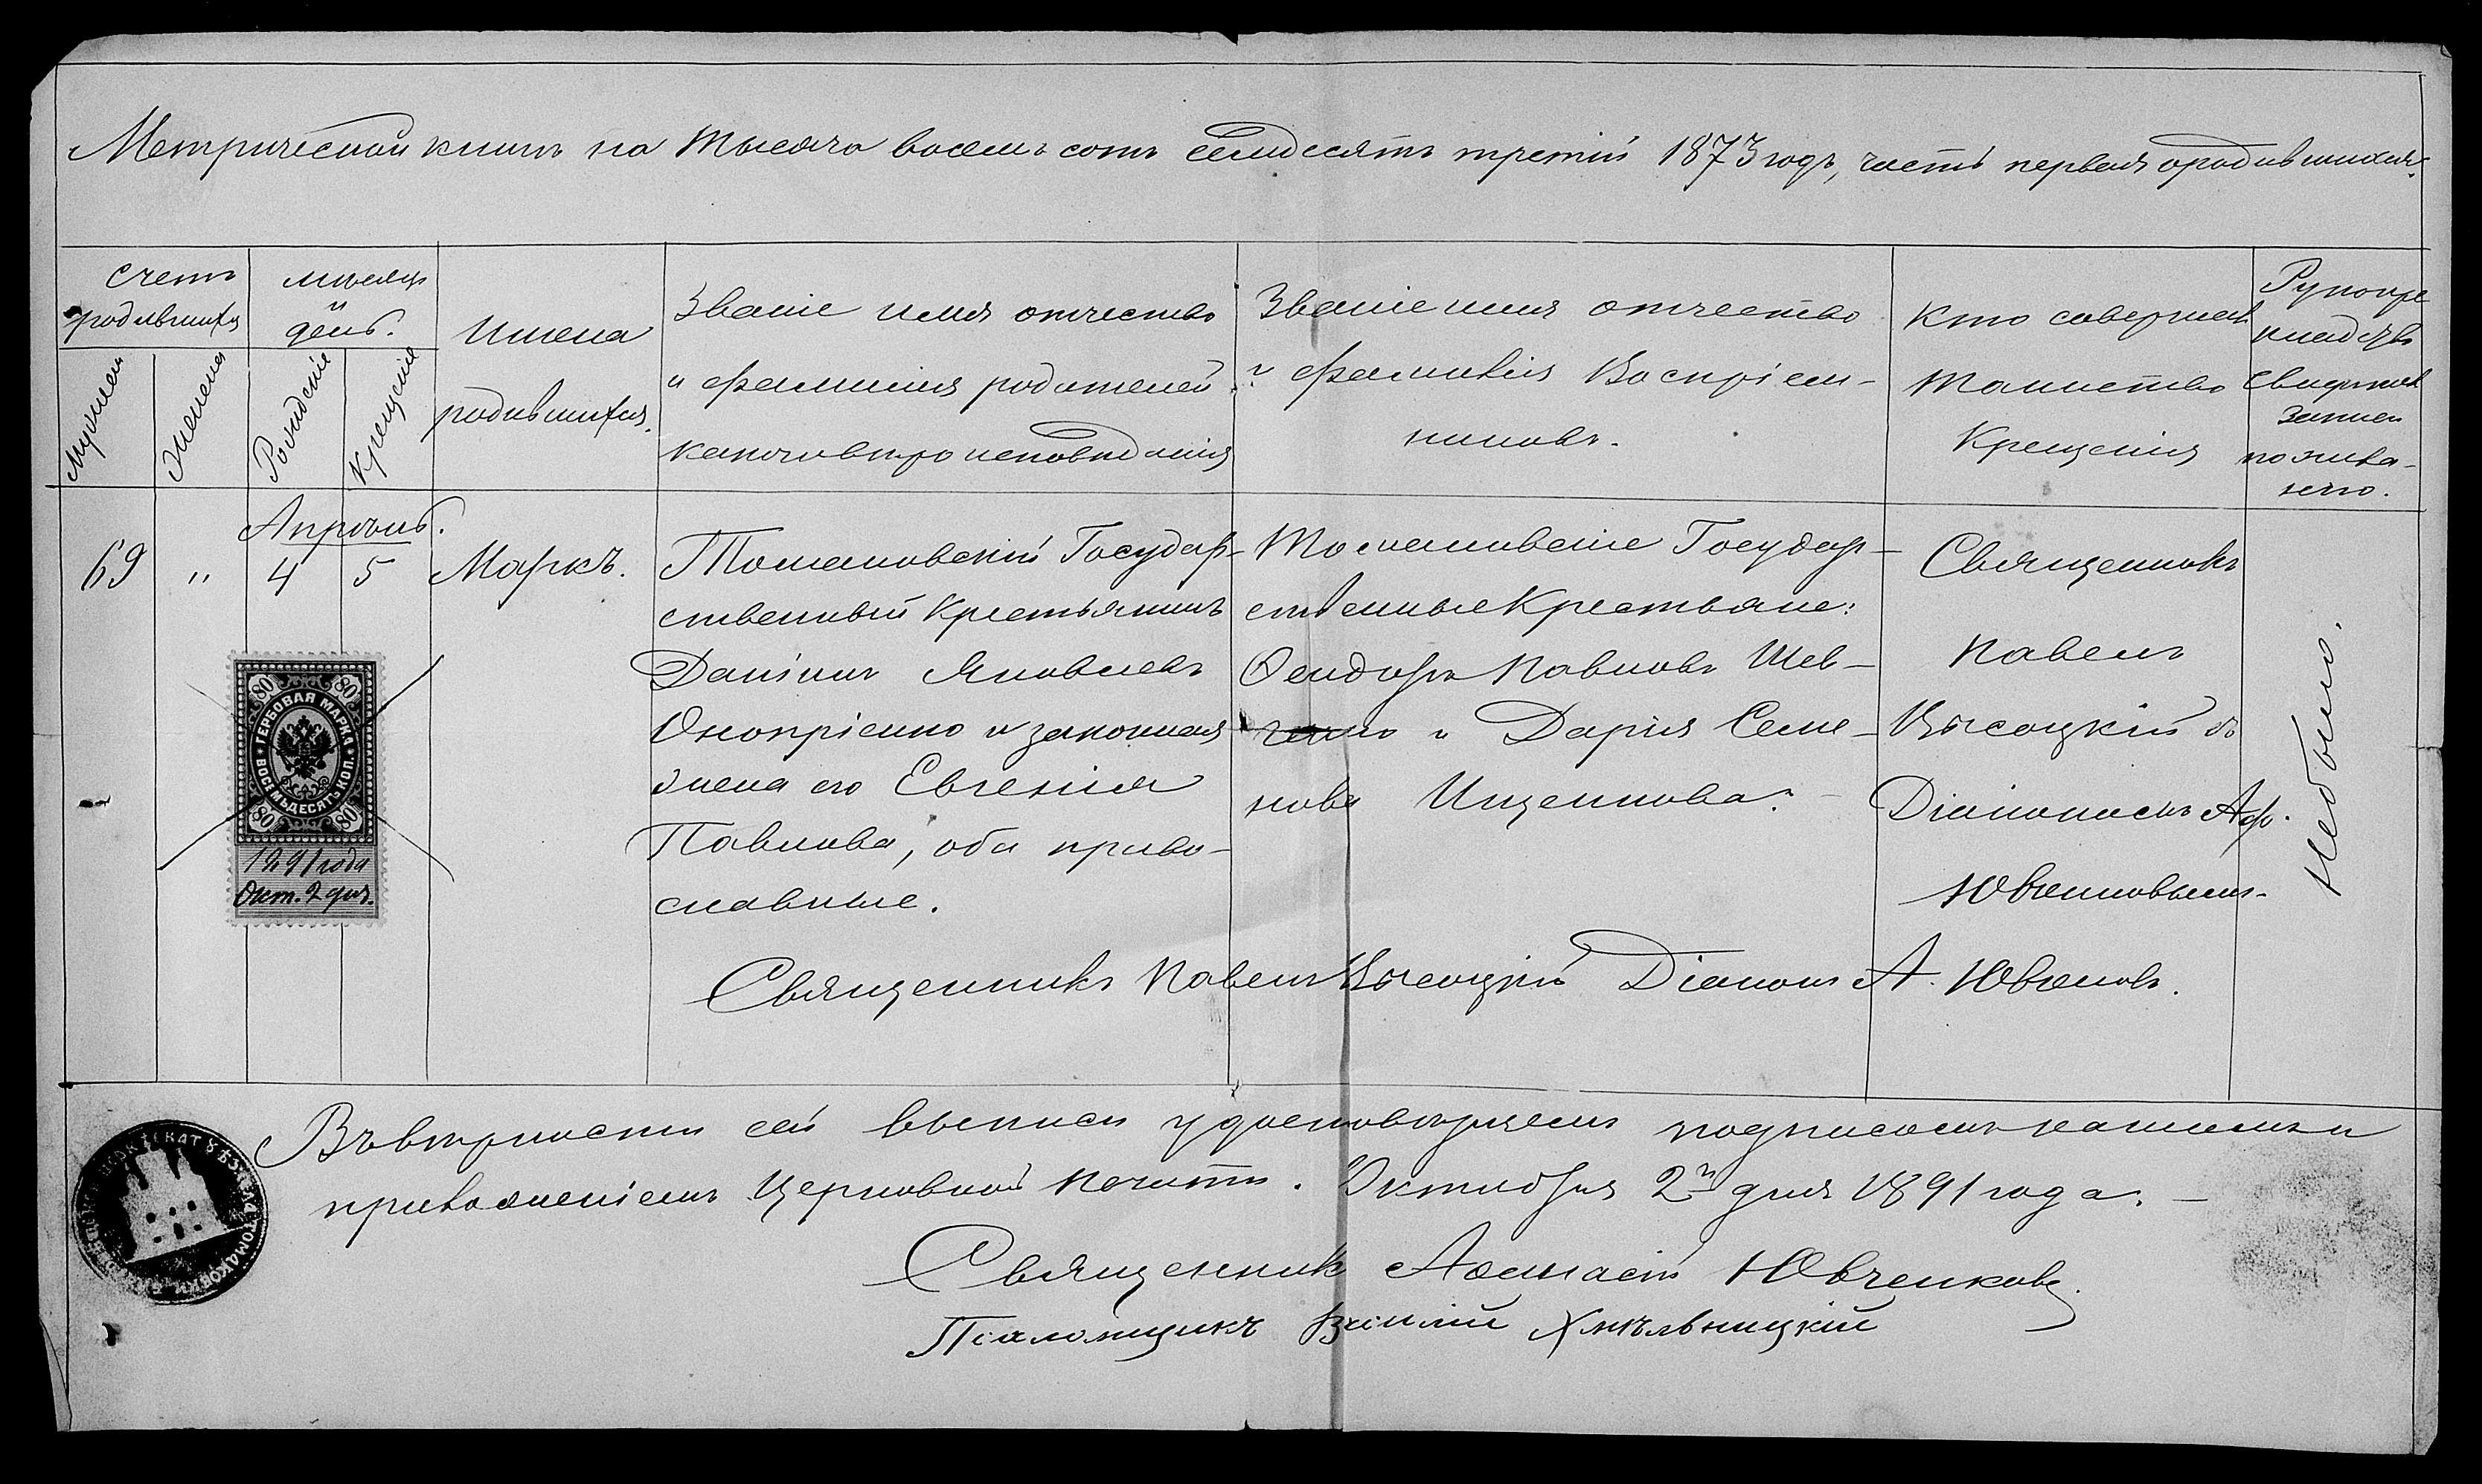 Метрической книги на тысяча восемь сотъ семдесятъ третій 1873 годъ, часть первая о родившихся.
Счетъ родившихся
мѣсяцъ и день.
Имена родившихся.
Званіе имя отчество
и фамилія родителей и
какого вѣроисповѣданія
Званіе имя отчество
и фамилія Воспріем-
никовъ.
Кто совершалъ
Таинство
Крещенія
Рукопри
кладств
свидѣтел
записи
по жела-
нію.
Мужеска
Женска
Рожденіе
Крещеніе
Апрѣль.
69 " 4 5 Маркъ.
Томаковскій Государ-
ственный Крестьянинъ
Даніилъ Яковлевъ
Оноприенко и законная
жена его Евгенія
Павлова, оба право-
славные.
Томаковскіе Государ-
ственные Крестьяне:
Феодоръ Павловъ Шев-
ченко и Дарія Семе-
нова Ищенкова.
Священникъ
Павелъ
Высоцкій съ
Діакономъ Аф.
Ювченковымъ
Не было.
ГЕРБОВАЯ МАРКА
ВОСЕМЬДЕСЯТЪ КОП.
80 80
80 80
1891 года
Окт. 2 дня.
Священникъ Павелъ Высоцкій Діаконъ А. Ювченковъ.
Въ вѣрности сей выписи удостовѣряемъ подписомъ нашимъ и
приложеніемъ Церковной печати. Октября 2 дня 1891 года.
Священникъ Афанасій Ювченковъ.
Псаломщикъ Василій Хмѣльницкій